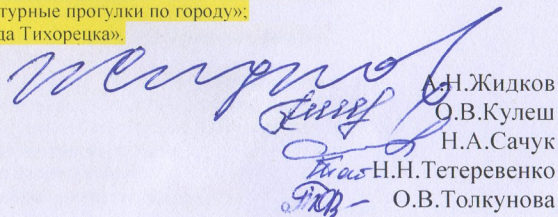 турные прогулки по городу»;
да Тихорецка».
А.Н.Жидков
О.В.Кулеш
Н.А.Сачук
Н.Н.Тетеревенко
О.В.Толкунова